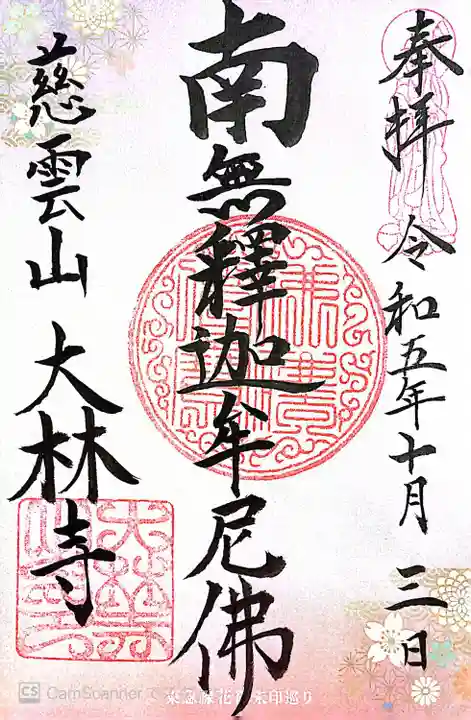 奉拝 令和五年十月三日
南無釋迦牟尼佛
慈雲山 大林寺
CS CamScanner で
東急線花御朱印巡り